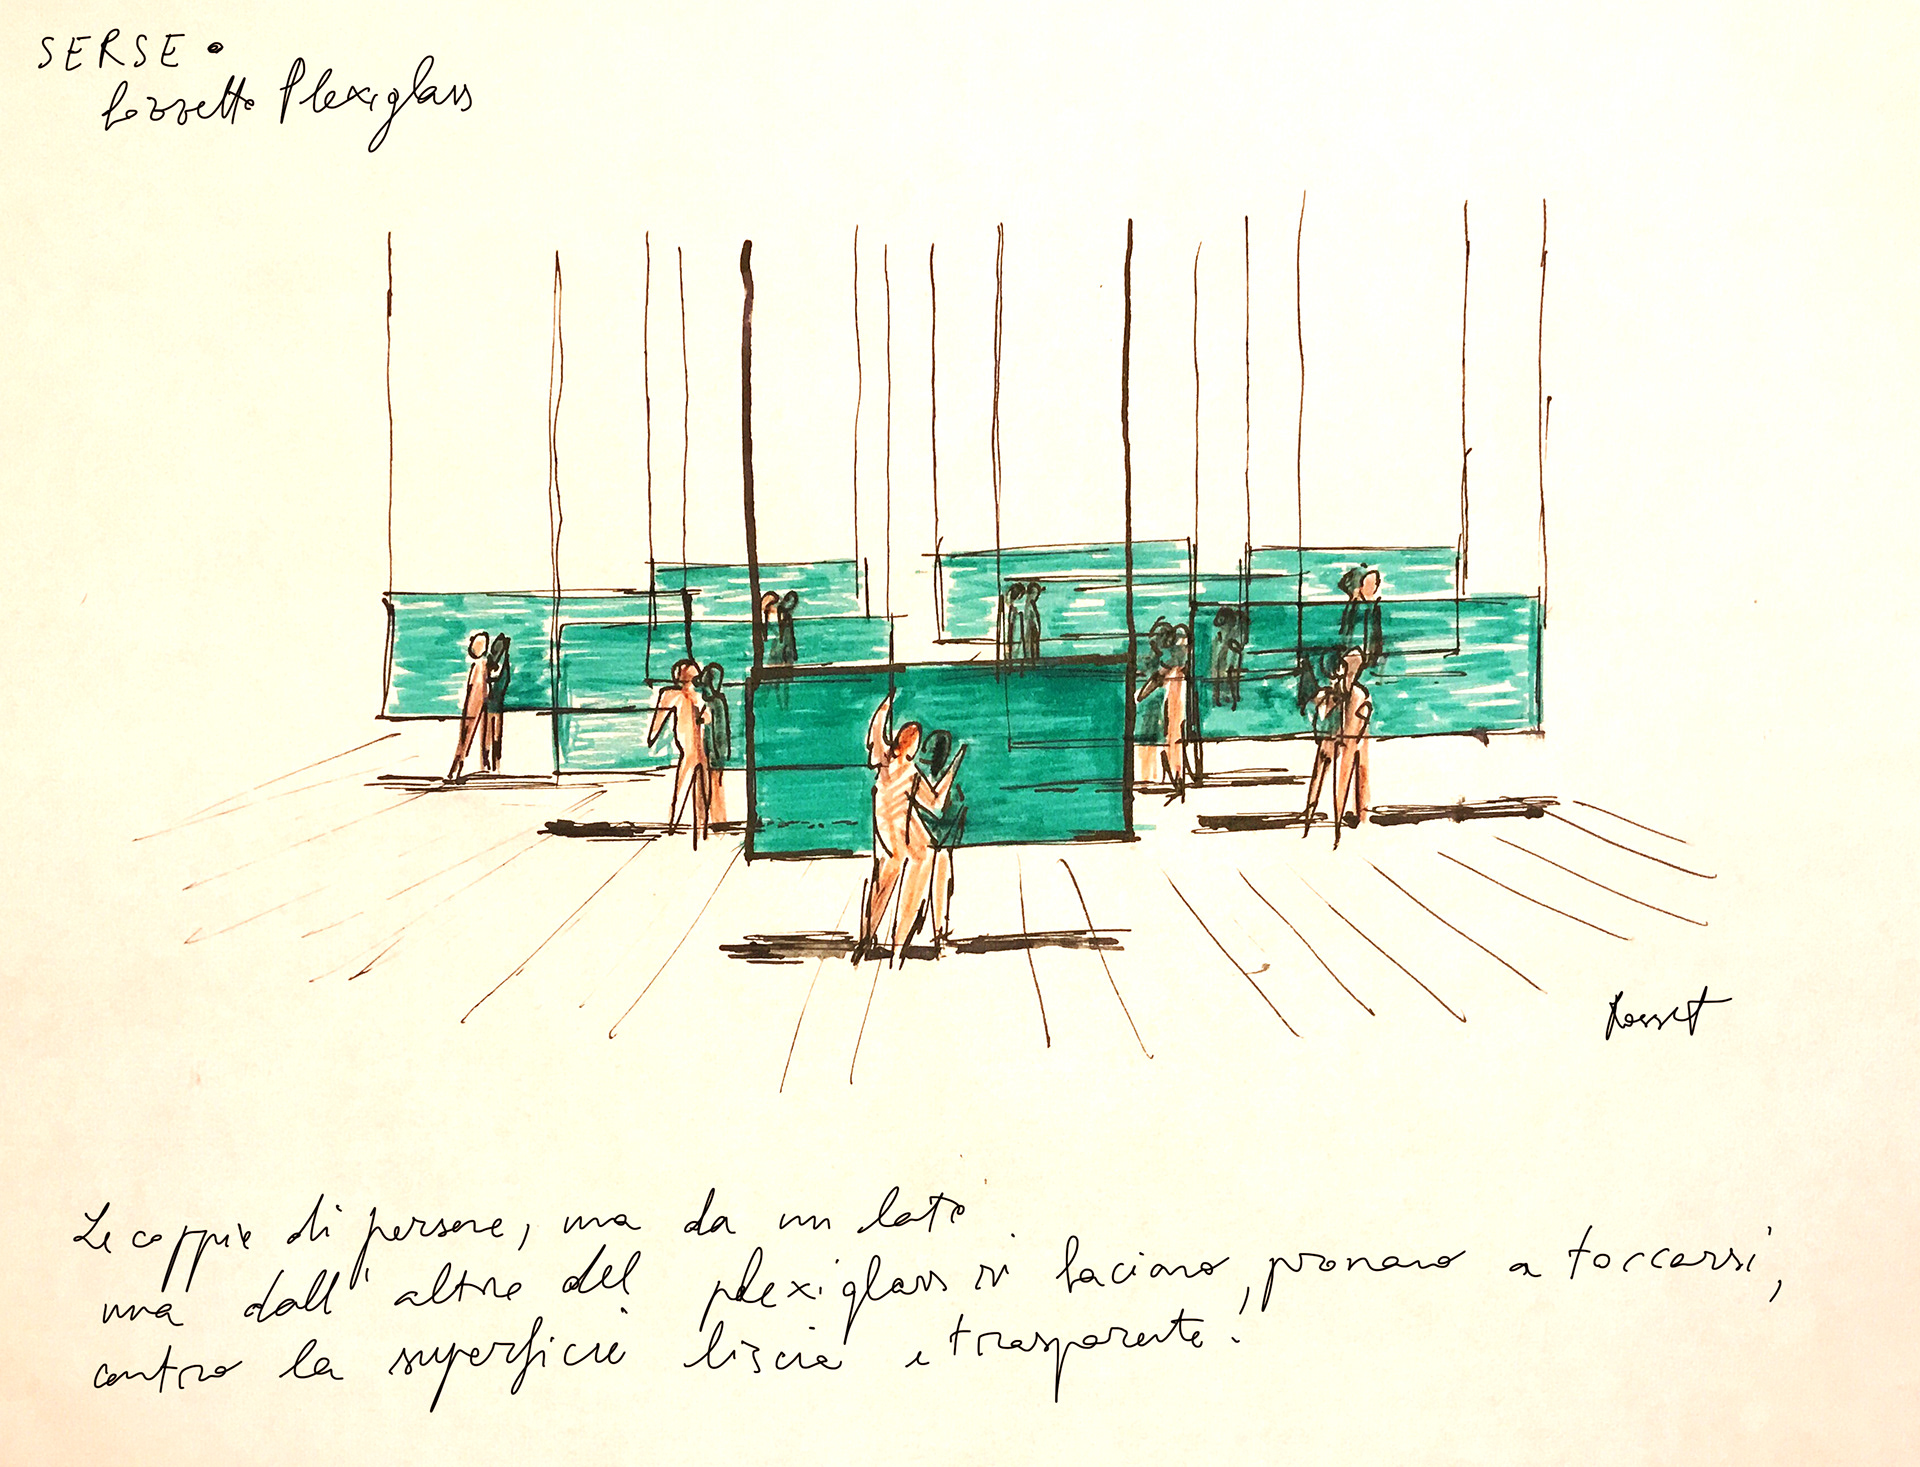 SERSE.
bozzetto Plexiglass
Rosset
Le coppie di persone, una da un lato
una dall'altro del plexiglass si baciano, provano a toccarsi,
contro la superficie liscia e trasparente.